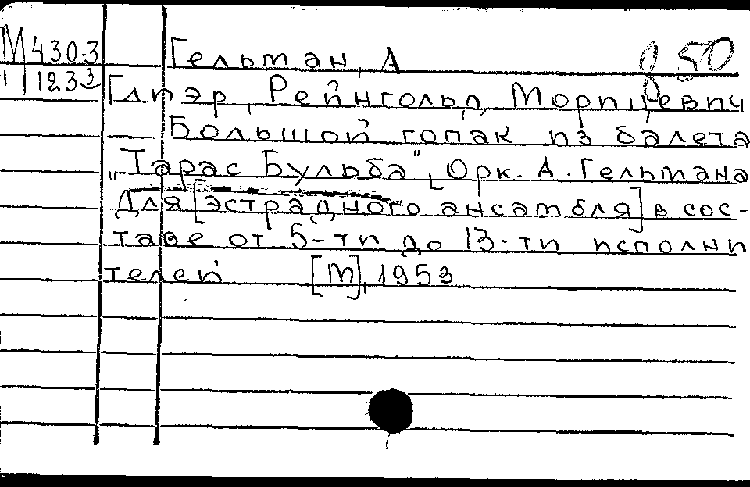 М 430-3 Гельман, А 0,50
11233
Глиэр, Рейнгольд Морицевич
— Большой гопак из балета
„Тарас Бульба", Орк. А. Гельмана
Для [эстрадного ансамбля] в сос-
таве от 5-ти до 13-ти исполни
телей [М], 1953